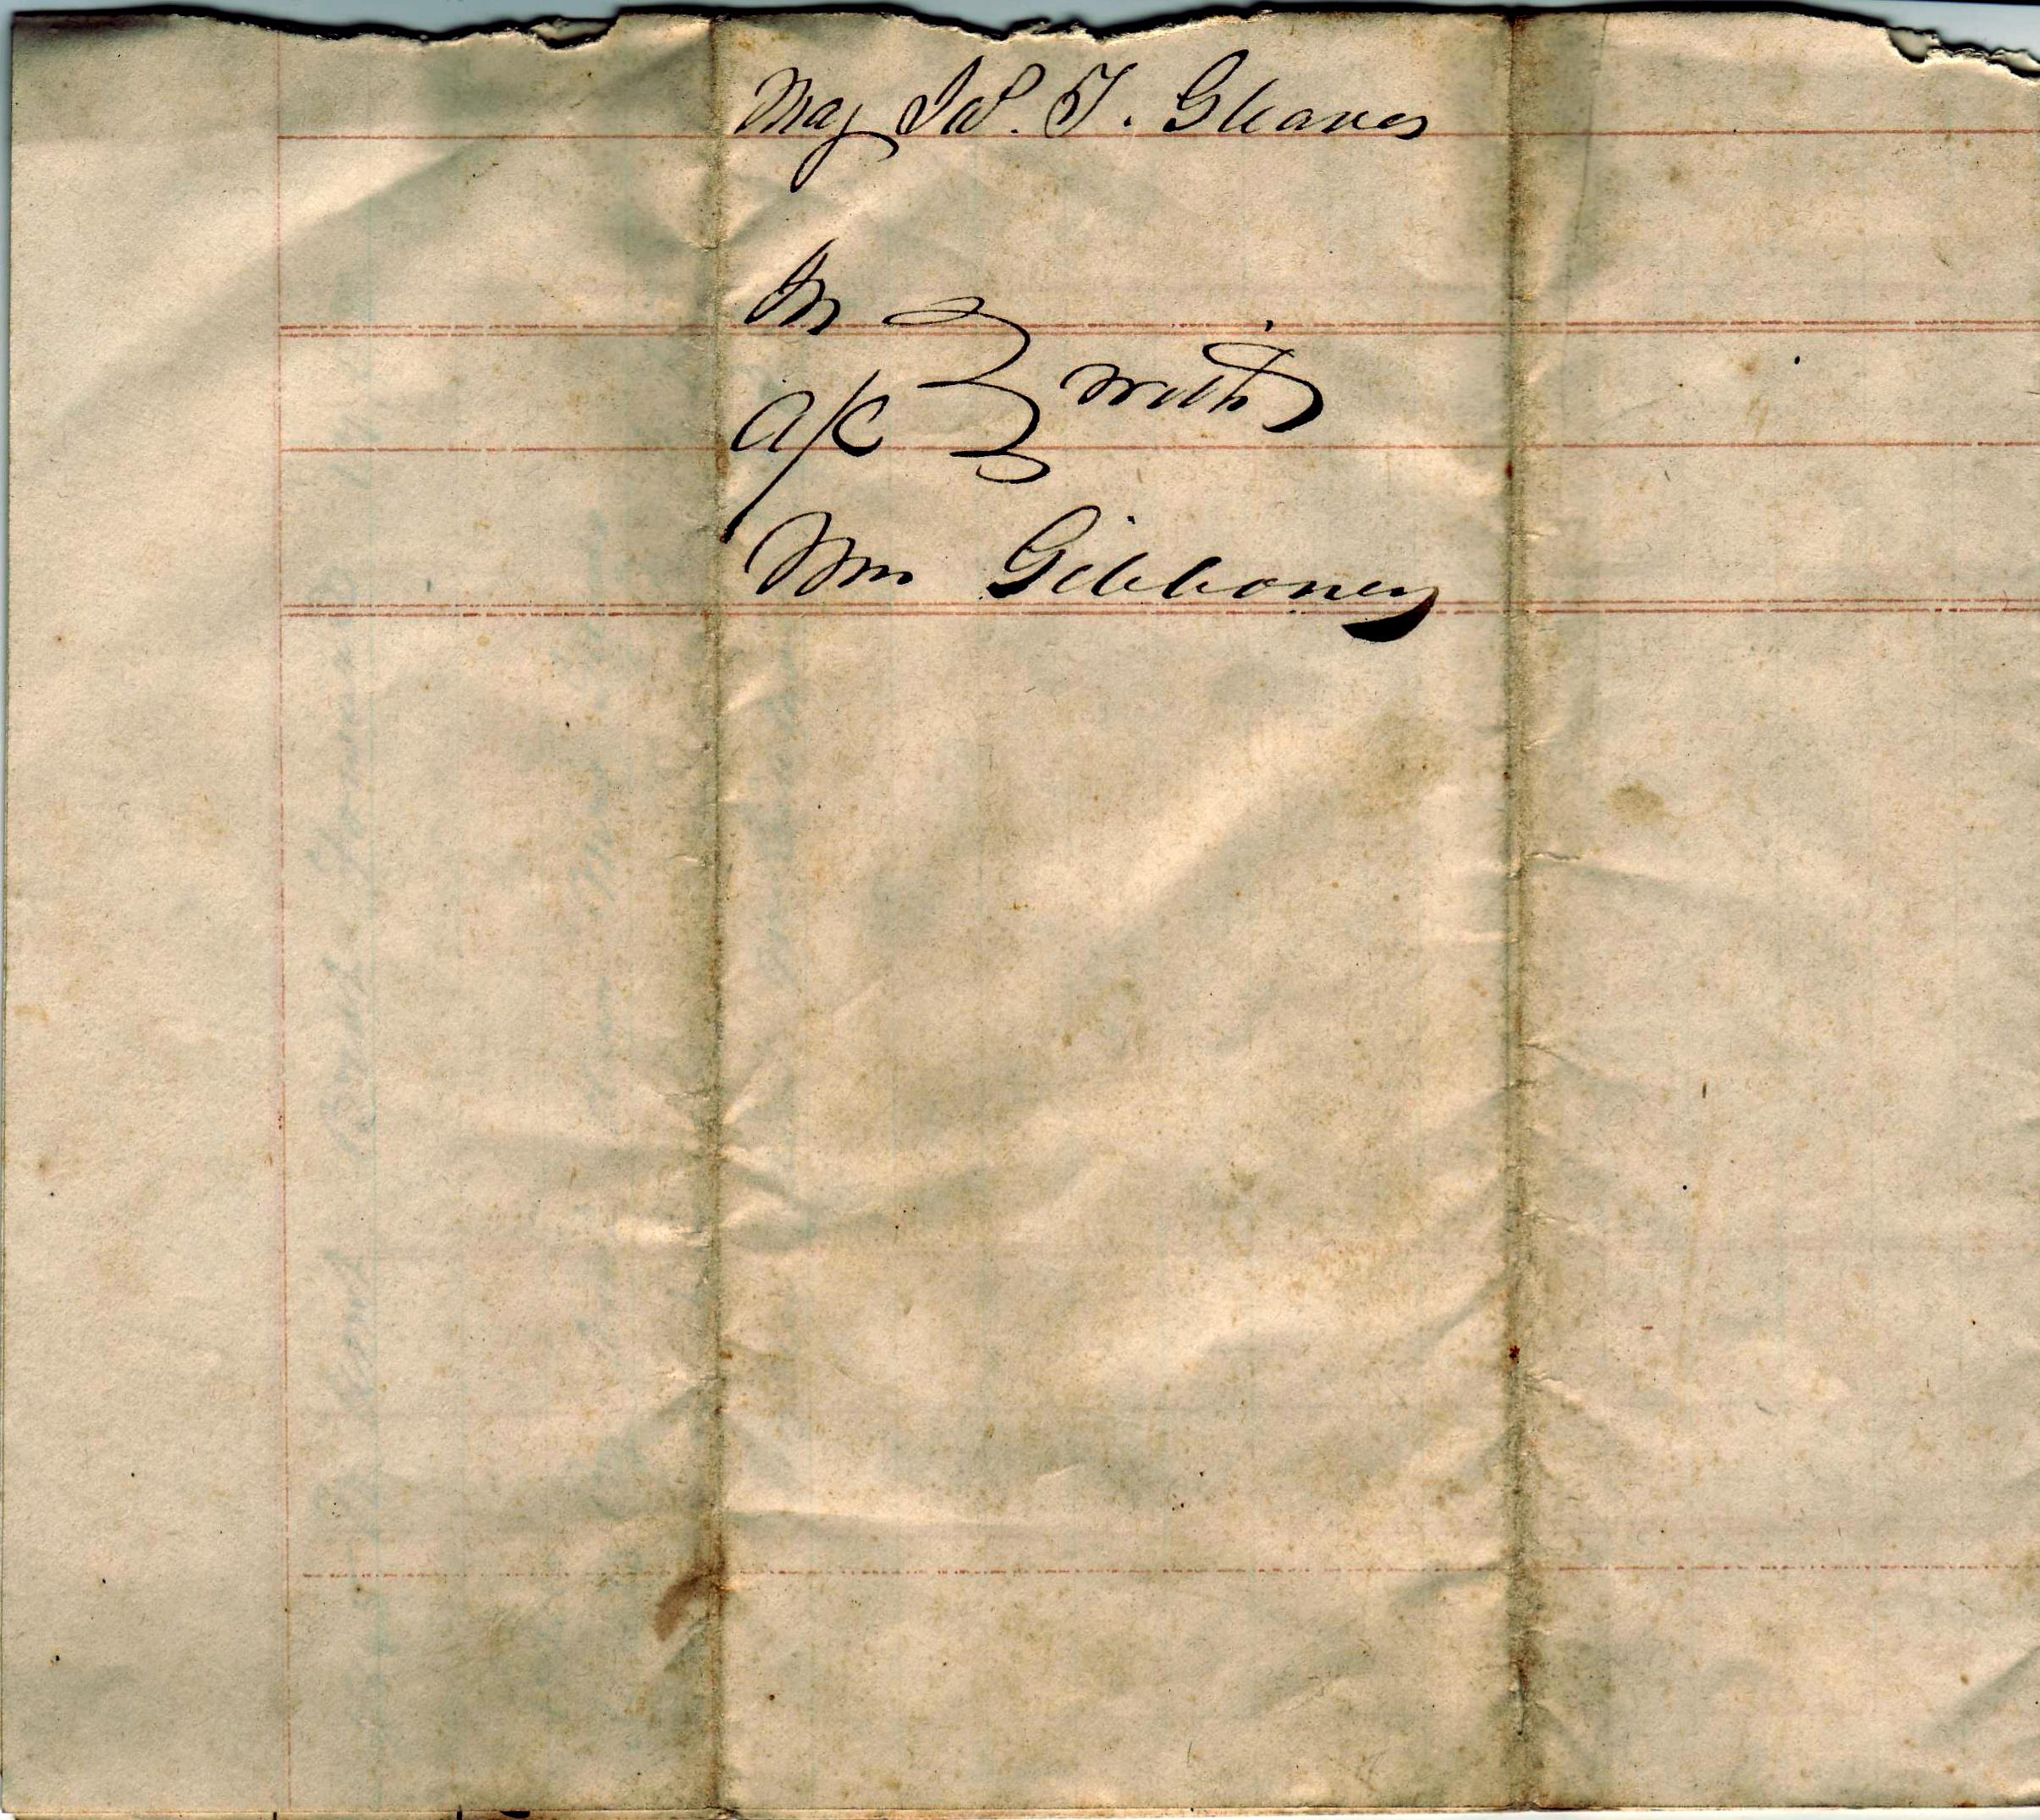 Maj Jas. T. Gleaves
In
a/c } with
Wm Gibboney